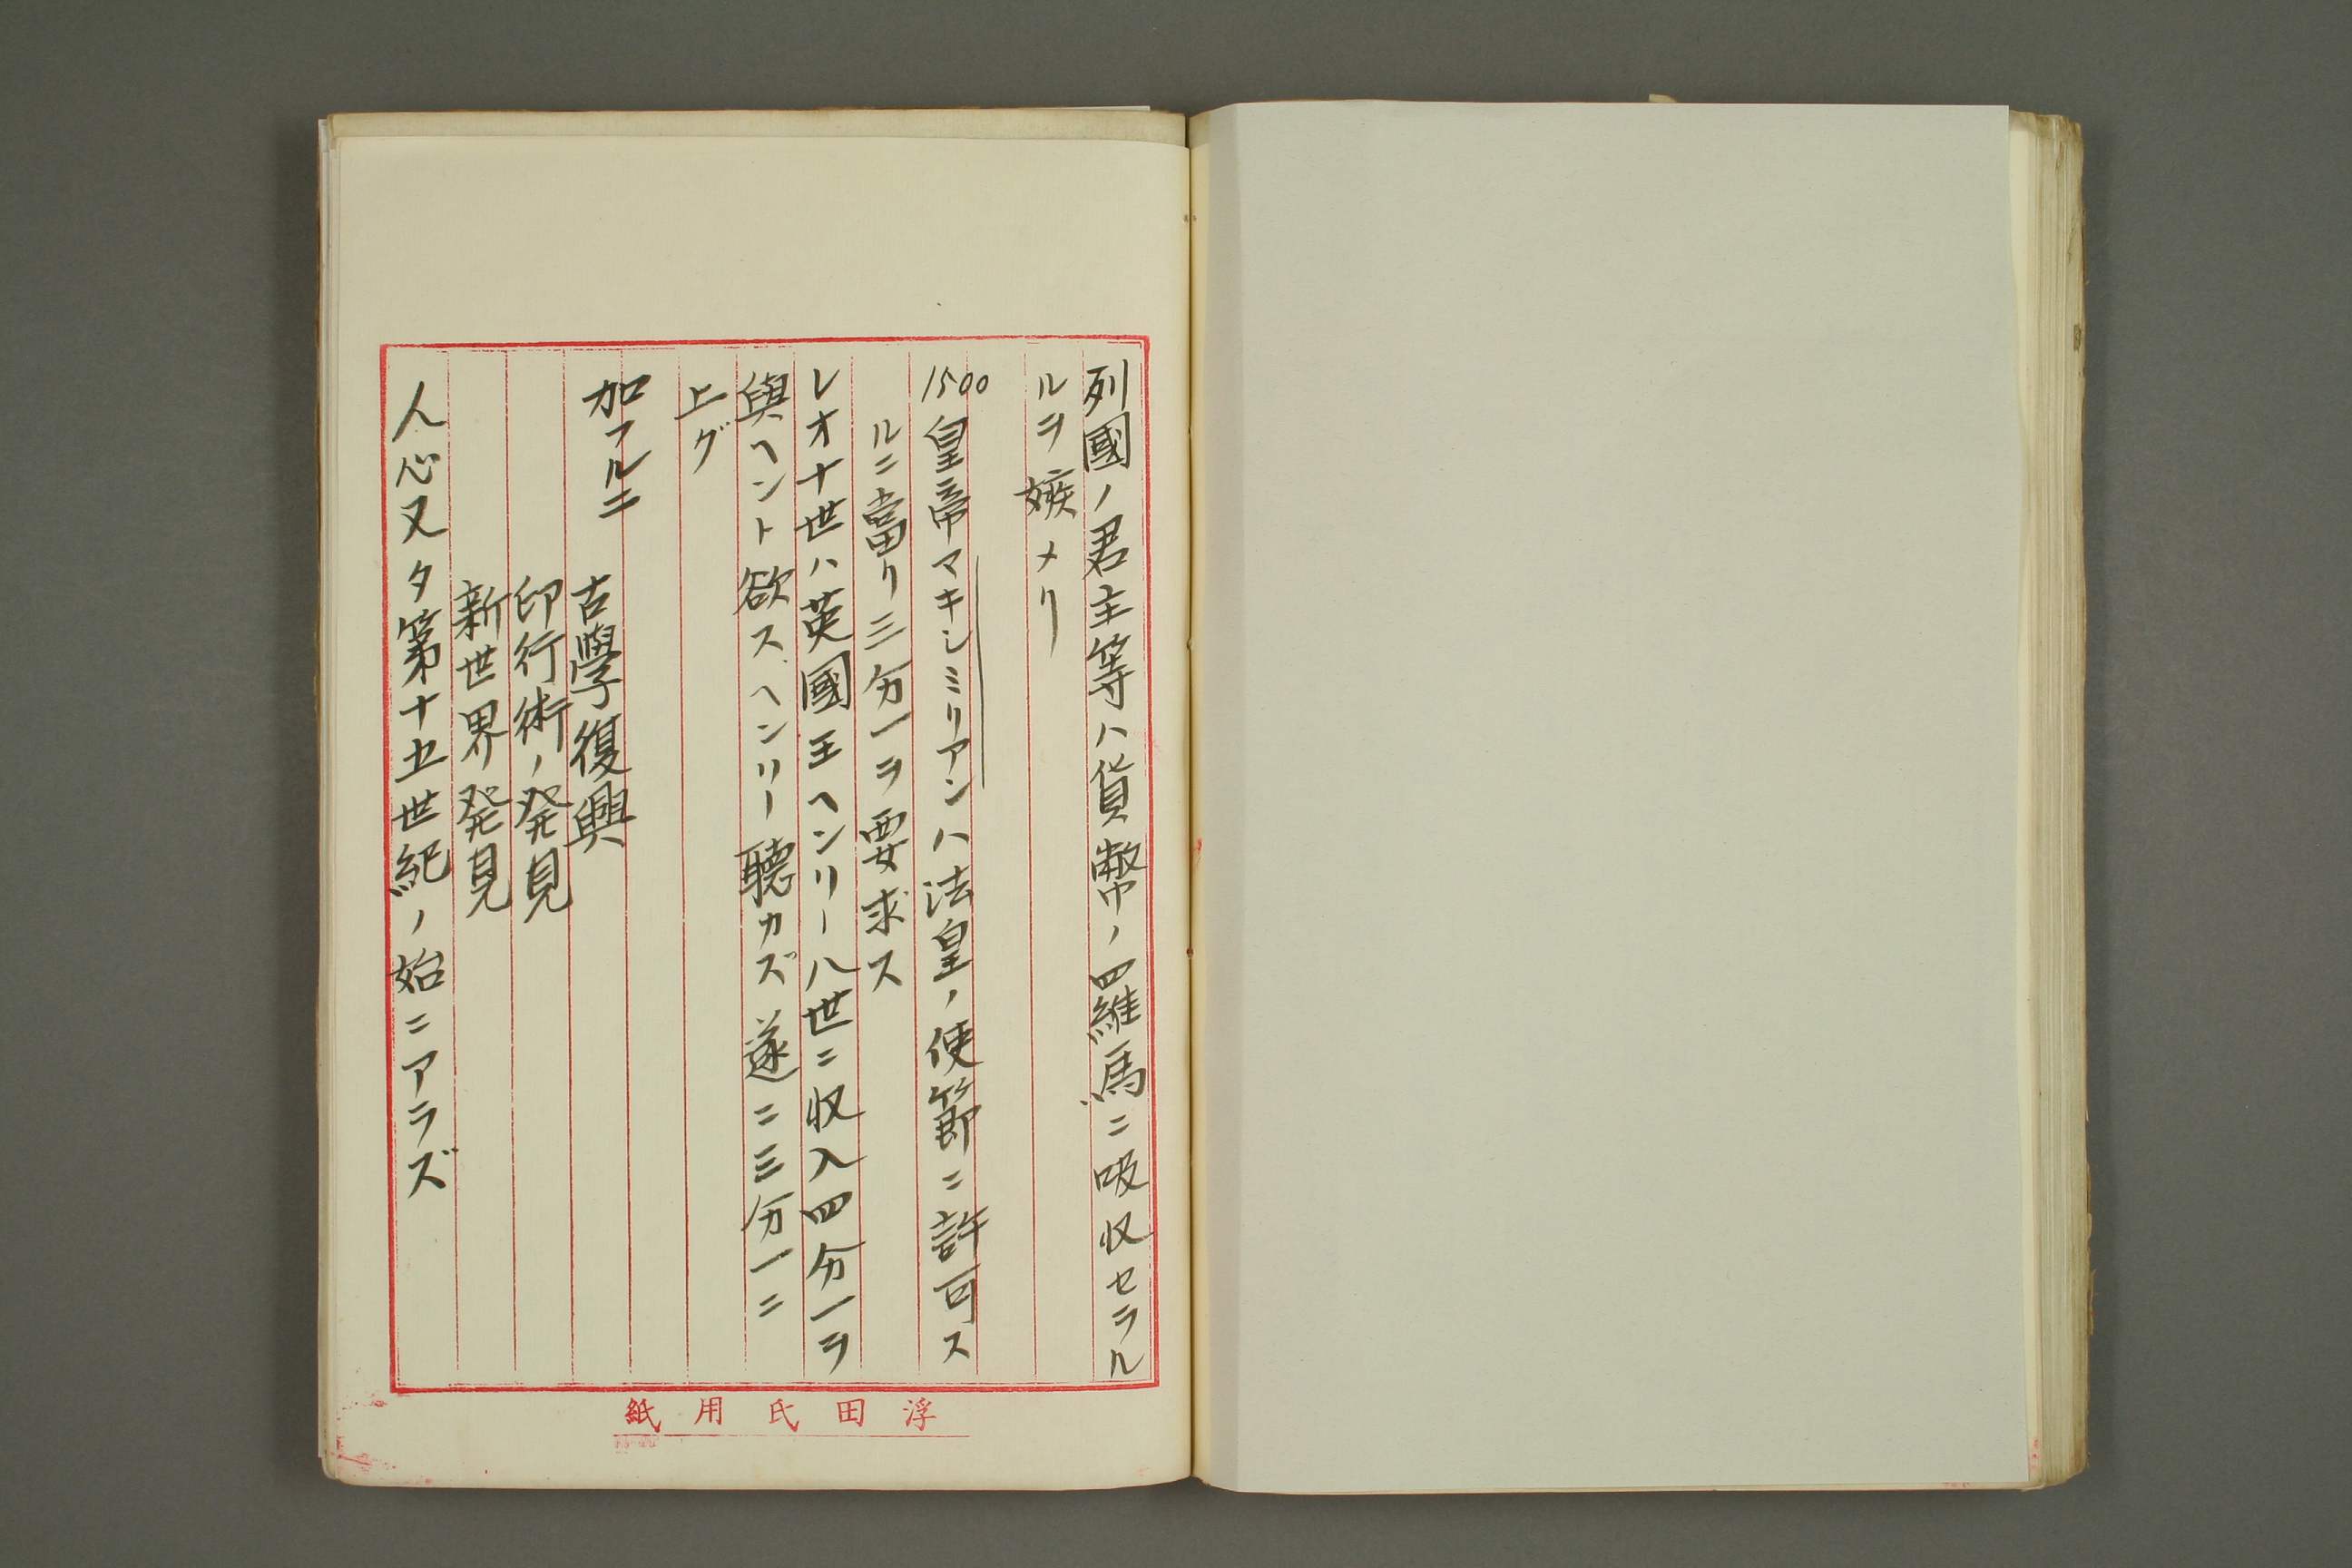 列國ノ君主等ハ貨幣ノ羅馬ニ吸収セラル
ルヲ嫉メリ
1500 皇帝マキシミリアンハ法皇ノ使節ニ許可ス
ルニ當リ三分一ヲ要求ス
レオ十世ハ英國王ヘンリー八世ニ収入四分一ヲ
與ヘント欲スヘンリー聴カズ遂ニ三分一ニ
上グ
加フルニ 古學復興
印行術ノ発見
新世界発見
人心又タ第十五世紀ノ始ニアラズ
浮田氏用紙